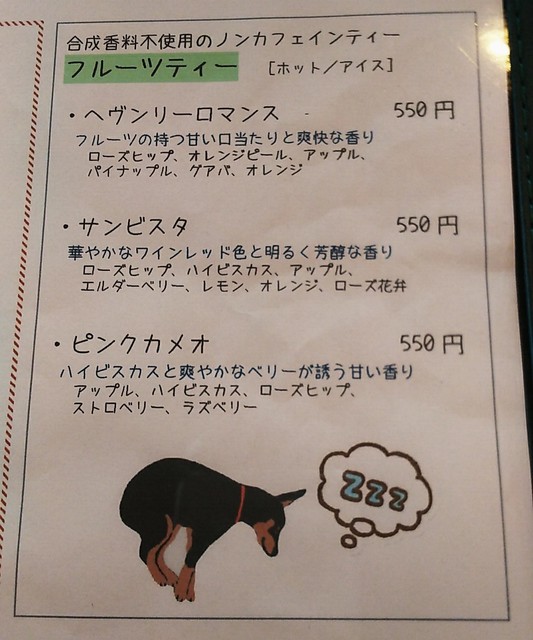 合成香料不使用のノンカフェインティー
フルーツティー [ホット／アイス]
・ヘヴンリーロマンス 550円
フルーツの持つ甘い口当たりと爽快な香り
ローズヒップ、オレンジピール、アップル、
パイナップル、グアバ、オレンジ
・サンビスタ 550円
華やかなワインレッド色と明るく芳醇な香り
ローズヒップ、ハイビスカス、アップル、
エルダーベリー、レモン、オレンジ、ローズ花弁
・ピンクカメオ 550円
ハイビスカスと爽やかなベリーが誘う甘い香り
アップル、ハイビスカス、ローズヒップ、
ストロベリー、ラズベリー
ZZZ